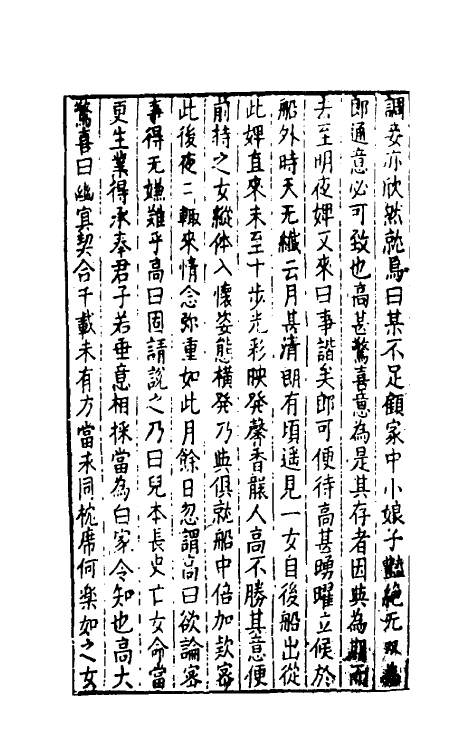 調妾亦欣然就焉曰某不足顧家中小娘子艶絶无双為
郎通意必可致也高甚驚喜意為是其存者因與為期而
去至明夜婢又來曰事諧矣郎可便待高甚踴曜立候於
船外時天无纎云月甚清朗有頃遥見一女自後船出從
此婢直來未至十步光彩映発馨香襲人高不勝其意便
前持之女縱体入懷姿態横発乃與俱就船中倍加欵密
此後夜二輙來情念弥重如此月餘日忽謂高曰欲論密
事得无嫌難乎高曰固請說之乃曰兒本長史亡女命當
更生業得承奉君子若垂意相採當為白家令知也高大
驚喜曰幽冥契合千載未有方當永同枕席何楽如之女